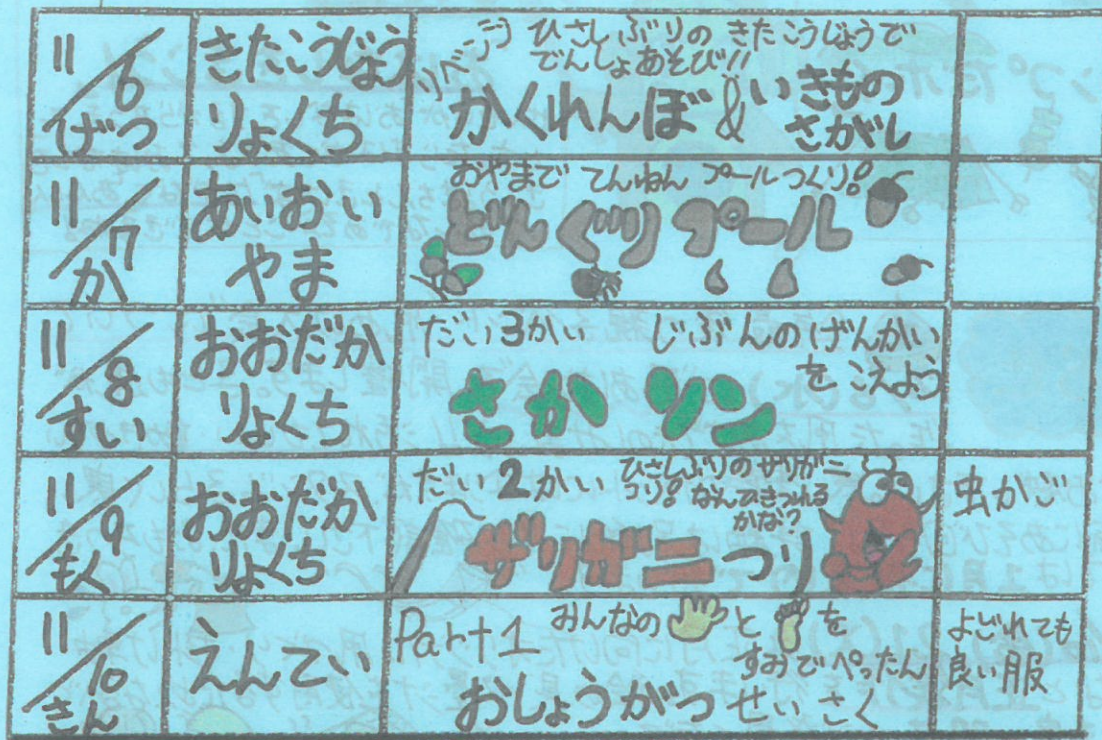 11/6
げつ
きたこうじょう
りょくち
リベンジ
ひさしぶりの きたこうじょうで
でんしょあそび!!
かくれんぼ & いきもの
さがし
11/7
か
あいおい
やま
おやまで てんねん プールつくり!
どんぐりプール
11/8
すい
おおだか
りょくち
だい3かい じぶんのげんかい
を こえよう
さかソン
11/9
もく
おおだか
りょくち
だい2かい
ひさしぶりのザリガニ
つり! なんひきつれる
かな?
ザリガニつり
虫かご
11/10
きん
えんてい
Part1
みんなの と を
すみでぺったん
おしょうがつ せいさく
よごれても
良い服